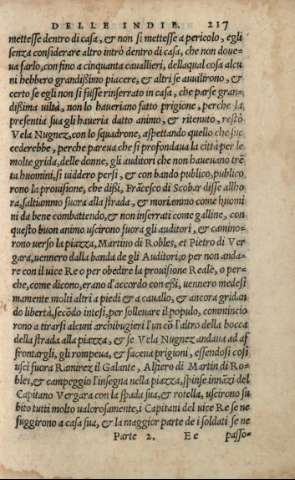 DELLE INDIE. 217
mettesse dentro di casa, & non si mettesse a pericolo, egli
senza considerare altro intrò dentro di casa, che non doue-
ua farlo, con fino a cinquanta cauallieri, della qual cosa alcu
ni hebbero grandissimo piacere, & altri se auuilirono, &
certo se egli non si fusse rinserrato in casa, che parse gran-
dissima uiltà, non lo haueriano fatto prigione, perche la
presentia sua gli haueria datto animo, & ritenuto, restò
Vela Nugnez, con lo squadrone, aspettando quello che suc
cederebbe, perche pareua che si profondaua la città per le
molte grida, delle donne, gli auditori che non haueuano tren
ta huomini, si uiddero persi, & con bando publico, publico
rono la prouisione, che dissi, Francesco di Scobar disse allho
ra, saltiammo fuora alla strada, & moriemno come huomi
ni da bene combattendo, & non inserrati come galline, con
questo buon animo uscirono fuora gli auditori, & camino-
rono uerso la piazza, Martino di Robles, et Pietro di Ver
gara, uennero dalla banda de gli Auditori, o per non anda-
re con il uice Re o per obedire la prouisione Reale, o per-
che, come dicono, erano d'accordo con essi, uennero medesi
manente molti altri a piedi & a cauallo, & ancora gridan
do libertà, secòdo intesi, per solleuare il popolo, commincio
rono a tirarsi alcuni archibugieri l'un cō l'altro della bocca
della strada alla piazza, & se Vela Nugnez andaua ad af
frontargli, gli rompeua, & facena prigioni, essendosi cosi
usci fuora Ramirez il Galante, Alfiero di Martin di Ro-
bles, & campeggio l'insegna nella piazza, spinse innāzi del
Capitano Vergara con la spada sua, & rotella, uscirono su
bito tutti molto ualorosamente, i Capitani del uice Re se ne
fuggirono a casa sua, & la maggior parte de i soldati se ne
Parte 2. Ee passo-